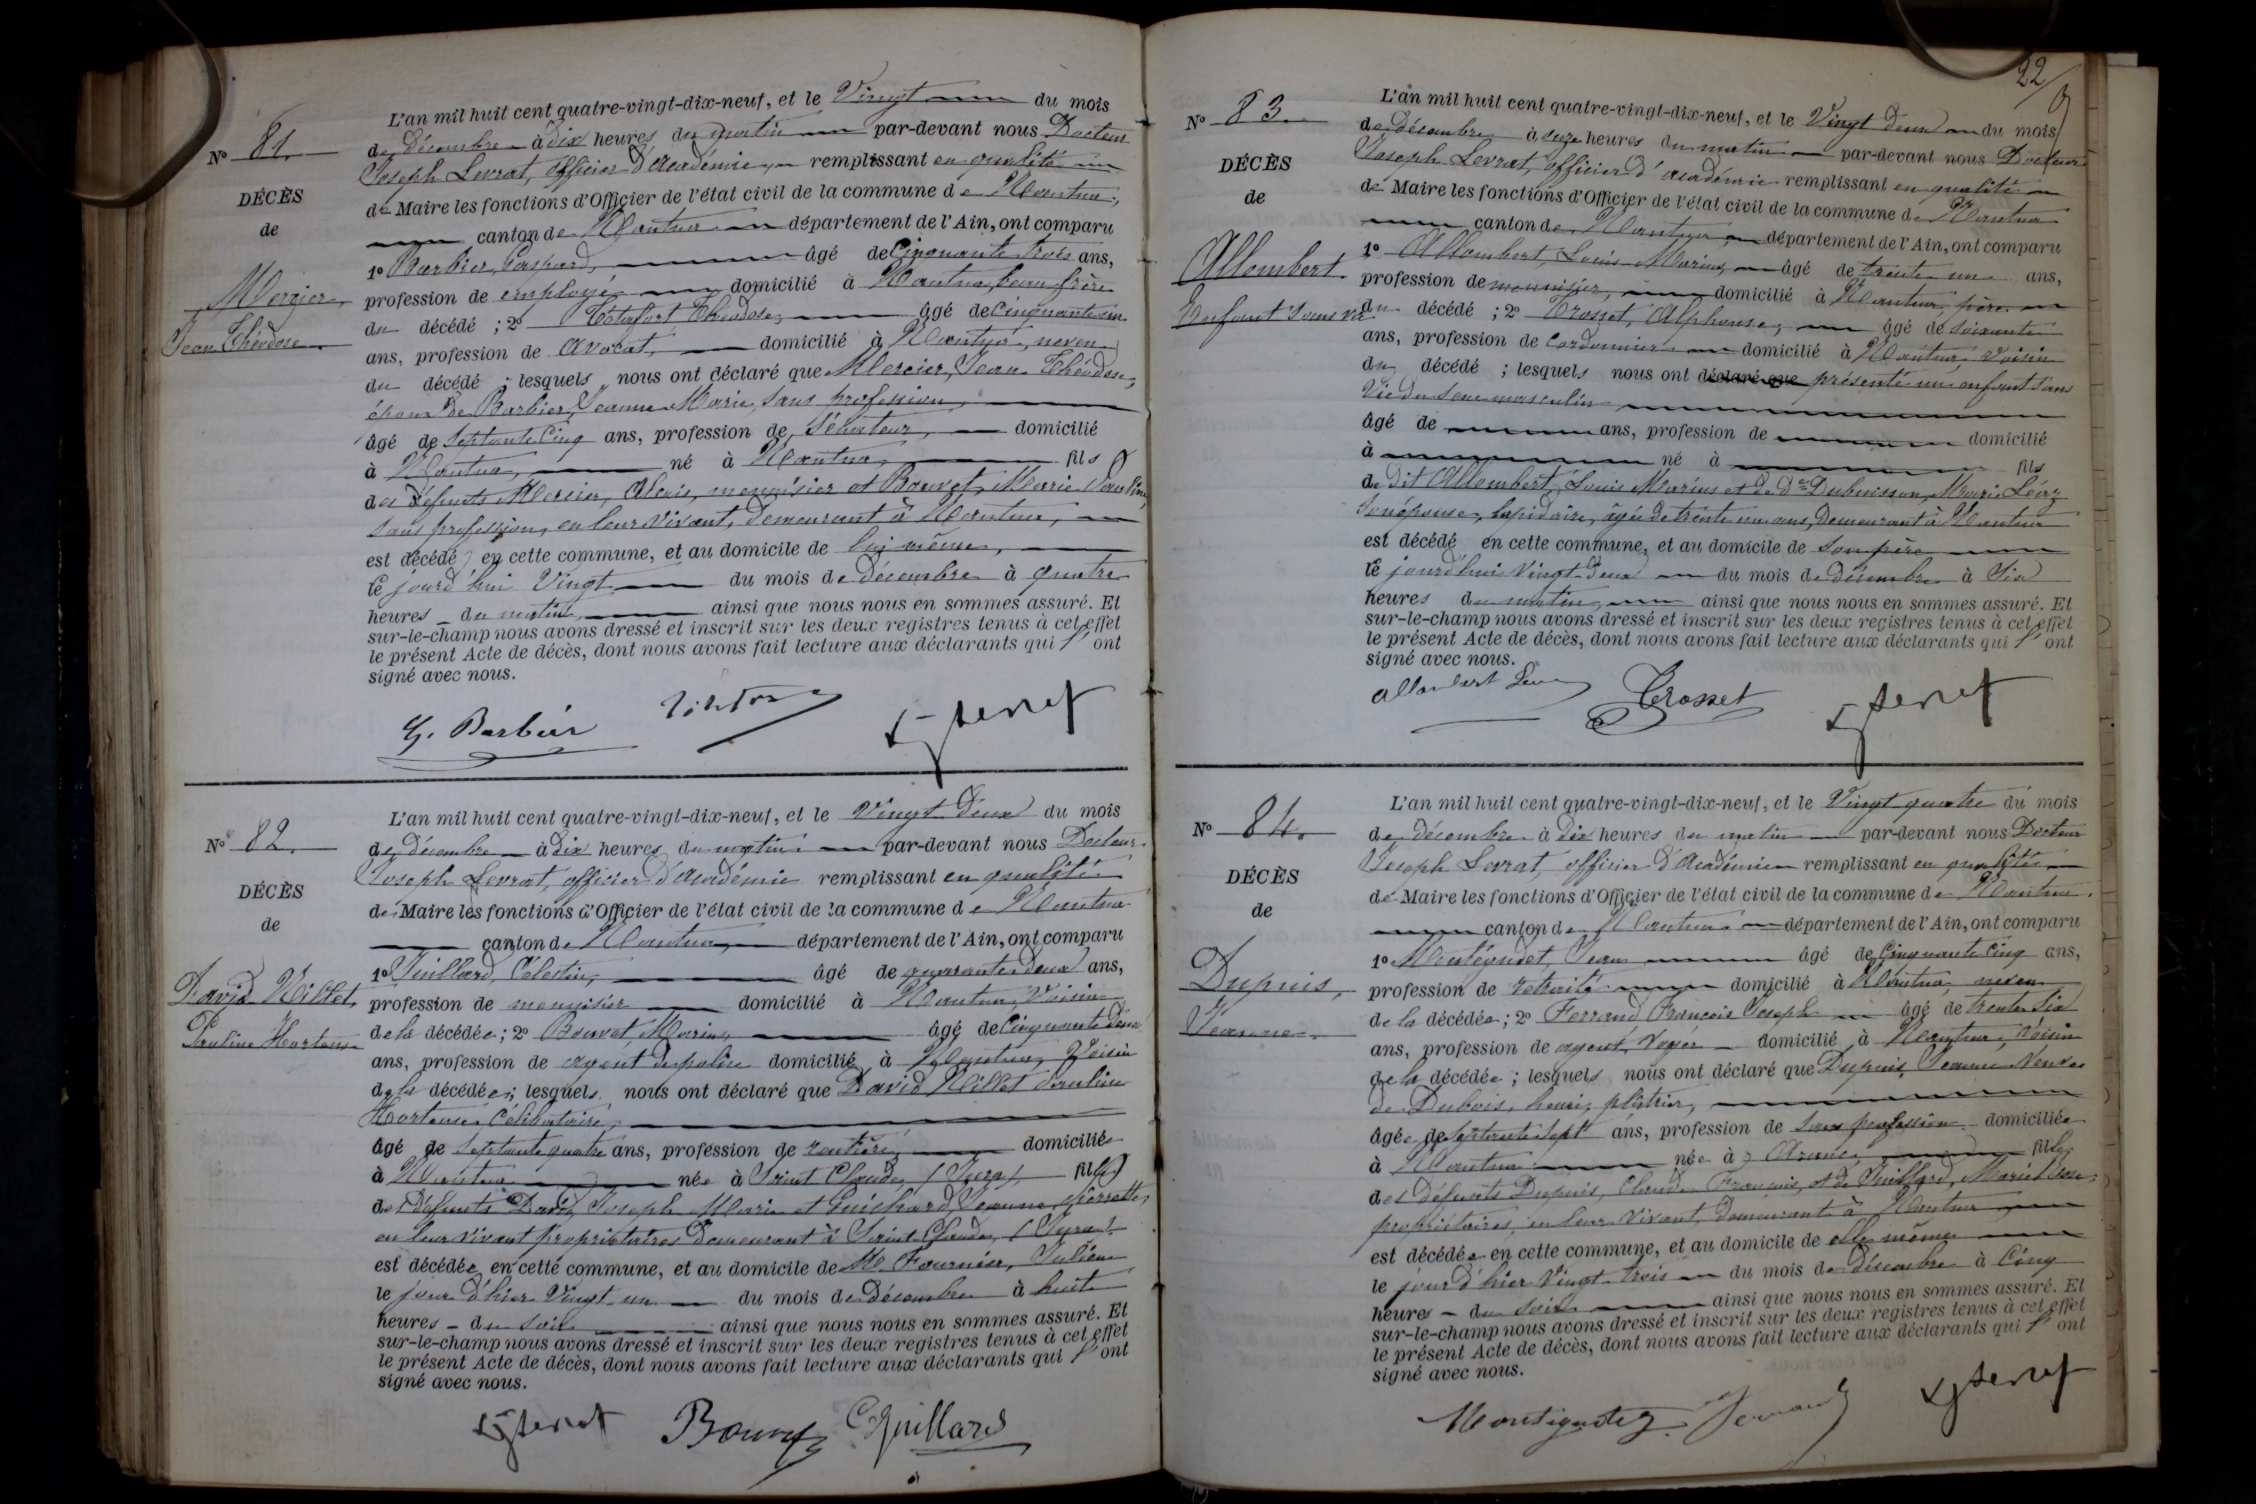 N° 81.
DÉCÈS
de
Mercier
Jean Théodose
L'an mil huit cent quatre-vingt-dix-neuf, et le Vingt du mois
de décembre à dix heures du matin par-devant nous Docteur
Joseph Levrat, officier d'Académie, remplissant en qualité
de Maire les fonctions d'Officier de l'état civil de la commune de Nantua,
canton de Nantua département de l'Ain, ont comparu
1° Barbier, Gaspard, âgé de Cinquante trois ans,
profession de employé domicilié à Nantua, beau frère
du décédé ; 2° Théodose, âgé de Cinquante
ans, profession de avocat, domicilié à Nantua, neveu
du décédé ; lesquels nous ont déclaré que Mercier, Jean Théodose,
époux de Barbier, Jeanne Marie, sans profession,
âgé de septante Cinq ans, profession de Sénateur, domicilié
à Nantua, né à Nantua, fils
des défunts Mercier, Alexis, menuisier et Bouvet, Marie Pauline,
sans profession, en leur vivant, demeurant à Nantua,
est décédé en cette commune, et au domicile de lui même,
le jourd'hui Vingt du mois de décembre à quatre
heures du matin, ainsi que nous nous en sommes assuré. Et
sur-le-champ nous avons dressé et inscrit sur les deux registres tenus à cet effet
le présent Acte de décès, dont nous avons fait lecture aux déclarants qui l'ont
signé avec nous.
G. Barbier
N° 82.
DÉCÈS
de
David Nillet
Pauline Hortense
L'an mil huit cent quatre-vingt-dix-neuf, et le Vingt deux du mois
de décembre à dix heures du matin par-devant nous Docteur
Joseph Levrat, officier d'Académie remplissant en qualité
de Maire les fonctions d'Officier de l'état civil de la commune de Nantua
canton de Nantua, département de l'Ain, ont comparu
1° Juillard, Célestin, âgé de quarante deux ans,
profession de menuisier domicilié à Nantua, Voisin
de la décédée ; 2° Bouvet, Marin, âgé de Cinquante deux
ans, profession de agent de police domicilié à Nantua, Voisin
de la décédée ; lesquels nous ont déclaré que David Nillet Pauline
Hortense, Célibataire,
âgé de septante quatre ans, profession de rentière, domiciliée
à Nantua née à Saint Claude, (Jura) fille
des défunts David, Joseph Marie et Guichard, Jeanne Pierrette,
en leur vivant propriétaires demeurant à Saint Claude, (Jura)
est décédée en cette commune, et au domicile de M. Fournier, Julien
le jour d'hier Vingt un du mois de décembre à huit
heures du soir ainsi que nous nous en sommes assuré. Et
sur-le-champ nous avons dressé et inscrit sur les deux registres tenus à cet effet
le présent Acte de décès, dont nous avons fait lecture aux déclarants qui l'ont
signé avec nous.
Bouvet C. Juillard
22
N° 83.
DÉCÈS
de
Allombert
Enfant sans vie
L'an mil huit cent quatre-vingt-dix-neuf, et le Vingt deux du mois
de décembre à onze heures du matin par-devant nous Docteur
Joseph Levrat, officier d'académie remplissant en qualité
de Maire les fonctions d'Officier de l'état civil de la commune de Nantua
canton de Nantua, département de l'Ain, ont comparu
1° Allombert, Louis Marius, âgé de trente un ans,
profession de menuisier, domicilié à Nantua, père
du décédé ; 2° Crosset, Alphonse, âgé de soixante
ans, profession de Cordonnier domicilié à Nantua Voisin
du décédé ; lesquels nous ont déclaré que présenté un enfant sans
Vie du sexe masculin
âgé de ans, profession de domicilié
à né à fils
du dit Allombert, Louis Marius et de De Dubuisson, Marie
son épouse, lapidaire, âgée de trente un ans, demeurant à Nantua
est décédé en cette commune, et au domicile de son père
le jourd'hui Vingt deux du mois de décembre à Six
heures du matin, ainsi que nous nous en sommes assuré. Et
sur-le-champ nous avons dressé et inscrit sur les deux registres tenus à cet effet
le présent Acte de décès, dont nous avons fait lecture aux déclarants qui l'ont
signé avec nous.
Crosset
N° 84.
DÉCÈS
de
Dupuis,
Jeanne
L'an mil huit cent quatre-vingt-dix-neuf, et le Vingt quatre du mois
de décembre à dix heures du matin par-devant nous Docteur
Joseph Levrat, officier d'Académie remplissant en qualité
de Maire les fonctions d'Officier de l'état civil de la commune de Nantua.
canton de Nantua département de l'Ain, ont comparu
1° Jean âgé de Cinquante Cinq ans,
profession de retraité domicilié à Nantua, neveu
de la décédée ; 2° Ferrand François Joseph âgé de trente Six
ans, profession de agent Voyer domicilié à Nantua, Voisin
de la décédée ; lesquels nous ont déclaré que Dupuis, Jeanne Veuve
de Dubois, henri, plâtrier,
âgée de septante sept ans, profession de Sans profession domiciliée
à Nantua née à fille
des défunts Dupuis, Claude François, et de Juillard, Marie
propriétaires, en leur vivant, demeurant à Nantua
est décédée en cette commune, et au domicile de elle même
le jour d'hier Vingt trois du mois de décembre à Cinq
heures du soir ainsi que nous nous en sommes assuré. Et
sur-le-champ nous avons dressé et inscrit sur les deux registres tenus à cet effet
le présent Acte de décès, dont nous avons fait lecture aux déclarants qui l'ont
signé avec nous.